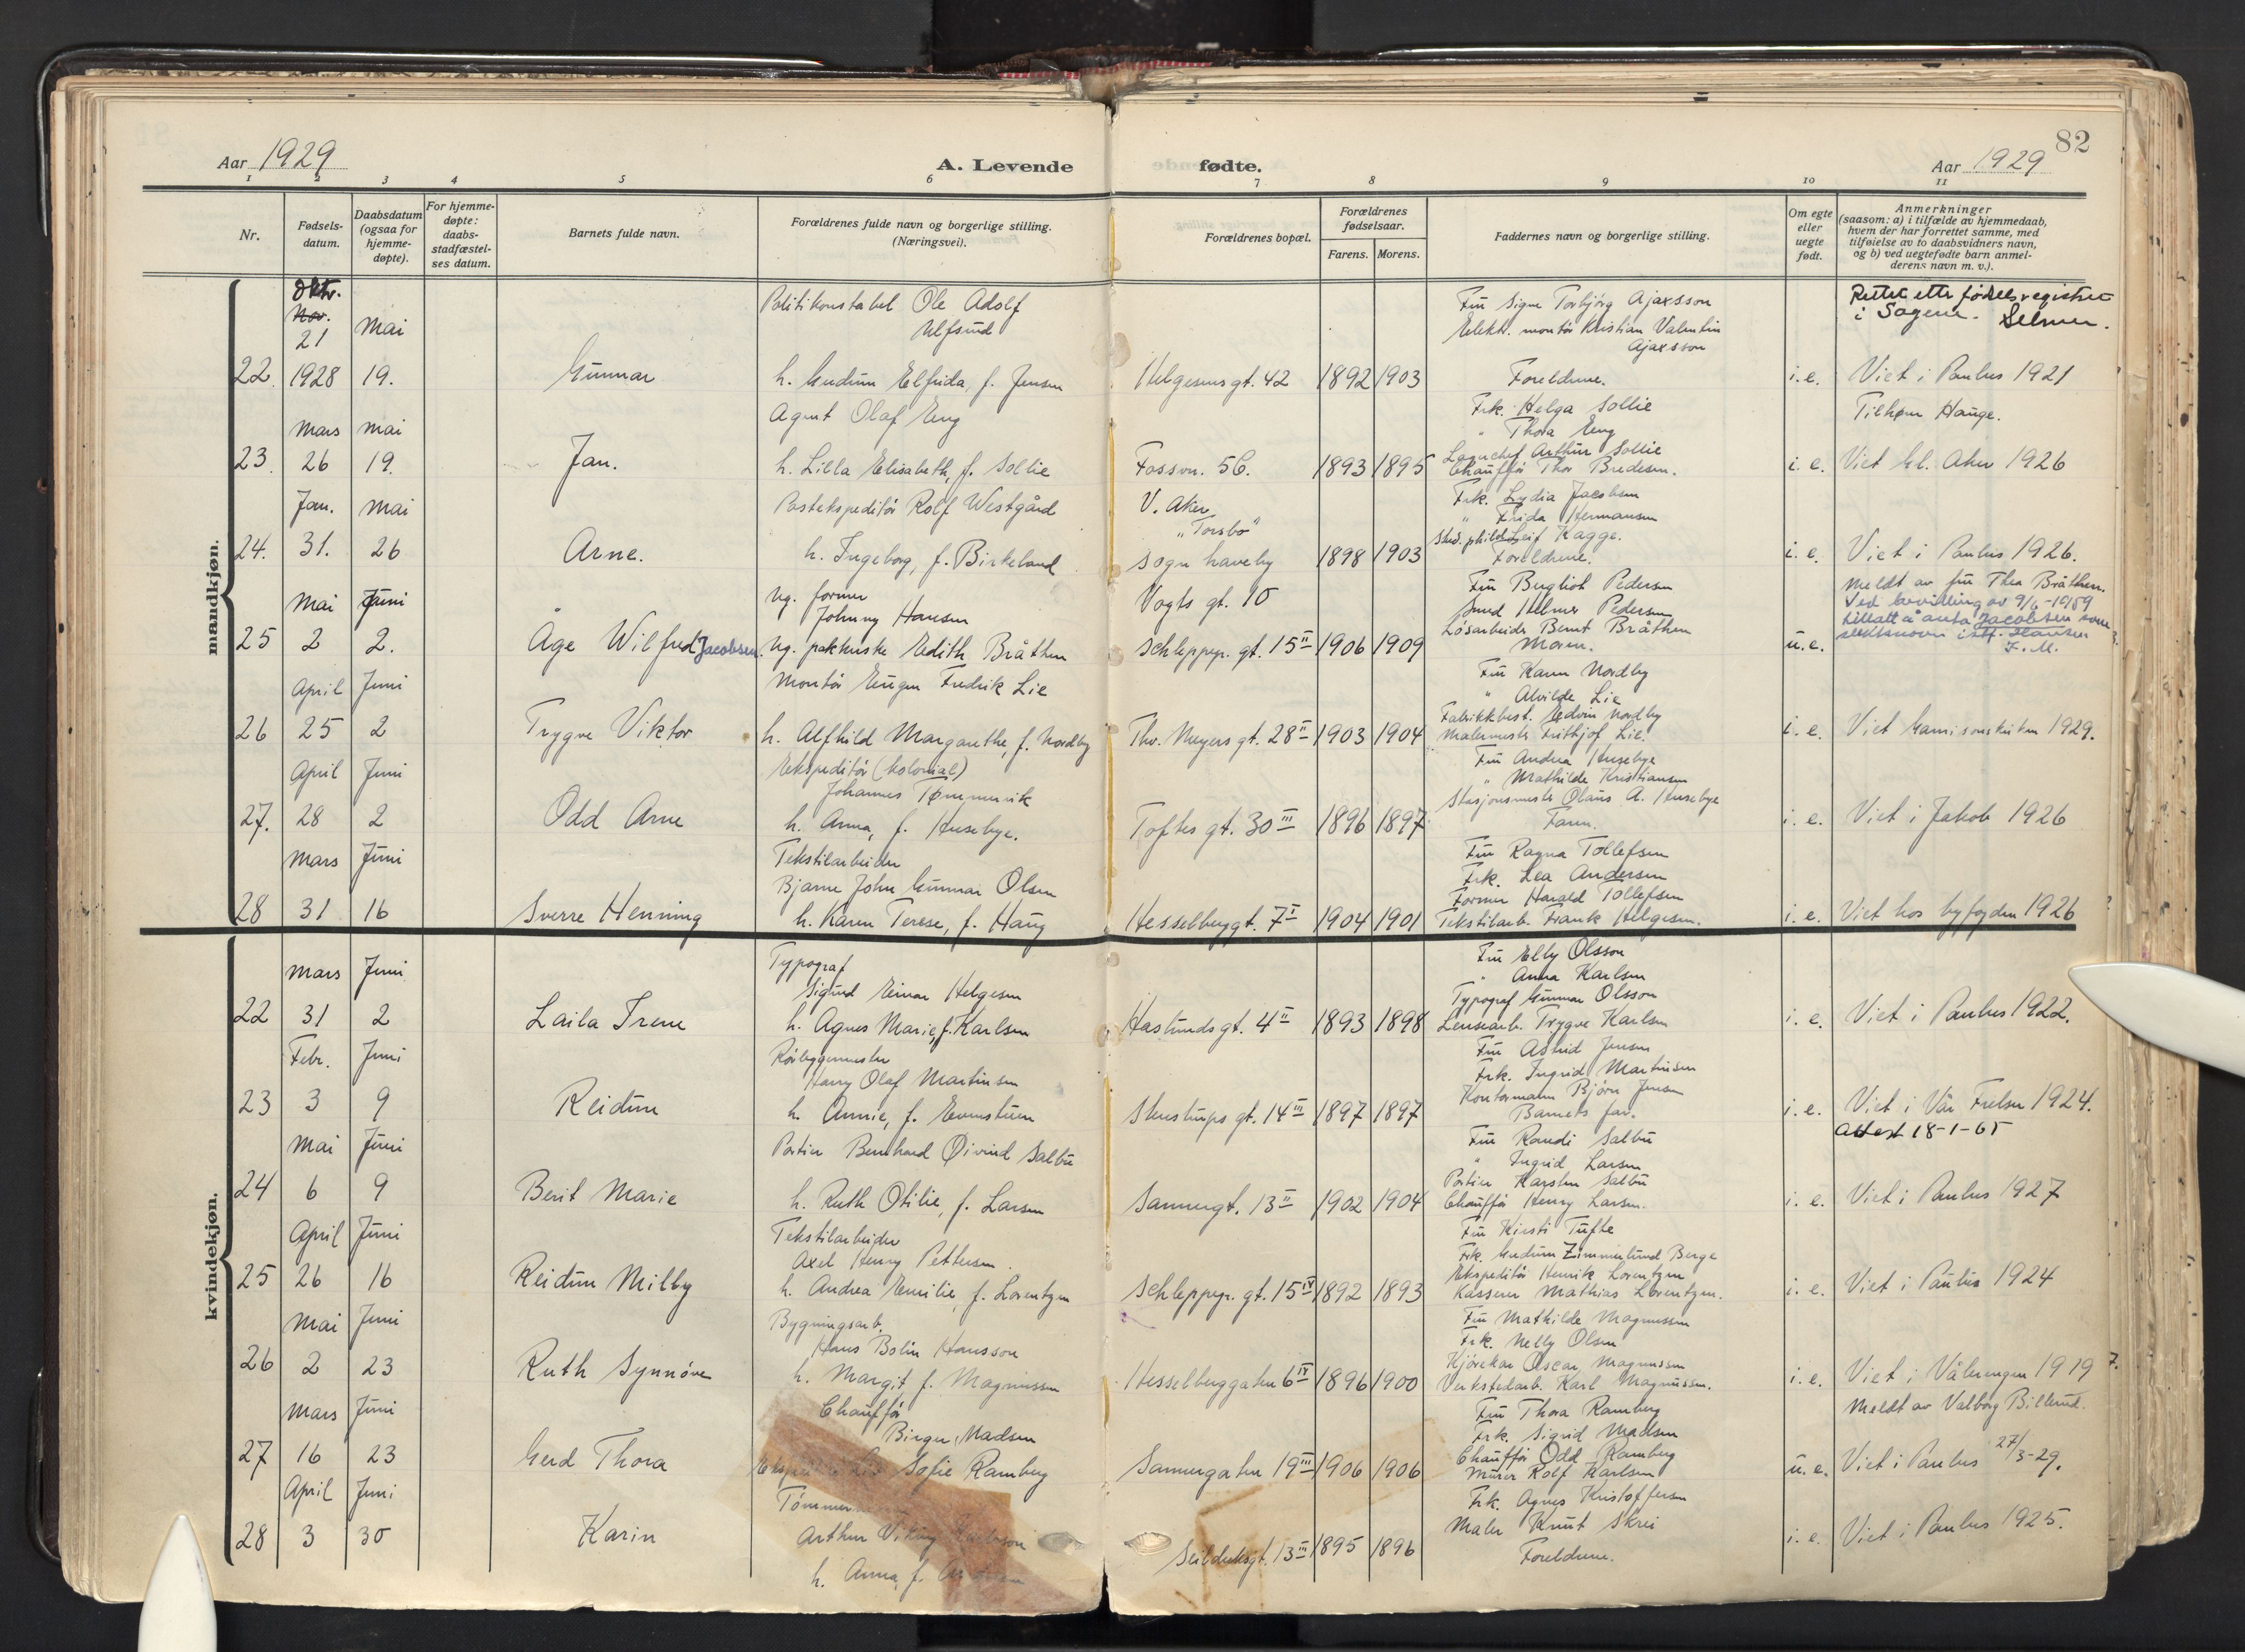 82
Aar 1929
A. Levende fødte.
Aar 1929
1 2 3 4 5 6 7 8 9 10 11
Nr.
Fødsels-
datum.
Daabsdatum
(ogsaa for
hjemme-
døpte).
For hjemme-
døpte:
daabs-
stadfæstel-
ses datum.
Barnets fulde navn.
Forældrenes fulde navn og borgerlige stilling.
(Næringsvei).
Forældrenes bopæl.
Forældrenes
fødselsaar.
Farens. Morens.
Faddernes navn og borgerlige stilling.
Om egte
eller
uegte
født.
Anmerkninger
(saasom: a) i tilfælde av hjemmedaab,
hvem der har forrettet samme, med
tilføielse av to daabsvidners navn,
og b) ved uegtefødte barn anmel-
derens navn m. v.).
mandkjøn.
Oktr.
Nov. Mai
21
22. 1928 19.
Gunnar
Politikonstabel Ole Adolf
Ulfsrud
h. Gudrun Elfrida, f. Jensen
Helgesens gt. 42 1892 1903
Fru Signe Torbjörg Ajaxsson
Elektr. montör Kristian Valentin
Ajaxsson
Foreldrene.
i. e.
Rettet etter fødselsregistret
i Sagene. Selmer.
Viet i Paulus 1921
Mars Mai
23. 26 19.
Jan.
Agent Olaf Eng
h. Lilla Elisabeth, f. Sollie
Fossvn. 5C. 1893 1895
Frk. Helga Sollie
" Thora Eng
Lagerchef Arthur Sollie
Chaufför Thor Bredesen.
i. e.
Tilhører Hauge.
Viet Gl. Aker 1926
Jan. Mai
24. 31. 26
Arne.
Postekspeditör Rolf Westgård
h. Ingeborg, f. Birkeland
V. Aker
"Torsbo"
Sogn haveby 1898 1903
Frk. Lydia Jacobsen
" Frida Hermansen
Stud. philol. Leif Kagge.
Foreldrene.
i. e.
Viet i Paulus 1926.
Mai Juni
25 2 2.
Åge Wilfred Jacobsen
Ug. former
Johnny Hansen
Ug. pakkerske Edith Bråthen
Vogts gt. 10
Schleppegr. gt. 15 II 1906 1909
Fru Bergliot Pedersen
Smed Helmer Pedersen
Løsarbeider Bernt Bråthen
Moren.
u. e.
Meldt av fru Thea Bråthen.
Ved bevilling av 9/6-1959
tillatt å anta Jacobsen som
slektsnavn istf. Hansen
F. M.
April Juni
26 25 2
Trygve Viktor
Montör Eugen Fredrik Lie
h. Alfhild Margarethe, f. Nordby
Thv. Meyers gt. 28 II 1903 1904
Fru Karen Nordby
" Alvilde Lie
Fabrikkbest. Edvin Nordby
Malermester Frithjof Lie.
i. e.
Viet Garnisonskirken 1929.
April Juni
27. 28 2
Odd Arne
Ekspeditör (kolonial)
Johannes Tømmervik
h. Anna, f. Husebye.
Toftes gt. 30 III 1896 1897
Fru Andrea Husebye
" Mathilde Kristiansen
Stasjonsmester Olaus A. Husebye
Faren.
i. e.
Viet i Jakob 1926
Mars Juni
28 31 16
Sverre Henning
Tekstilarbeider
Bjarne John Gunnar Olsen
h. Karen Terese, f. Haug
Hesselberggt. 7 I 1904 1901
Fru Ragna Tollefsen
Frk. Lea Andersen
Former Harald Tollefsen
Tekstilarb. Frank Helgesen.
i. e.
Viet hos byfogden 1926
kvindekjøn.
Mars Juni
22 31 2
Laila Irene
Typograf
Sigurd Einar Helgesen
h. Agnes Marie, f. Karlsen
Haslunds gt. 4 II 1893 1898
Fru Elly Olsson
" Anna Karlsen
Typograf Gunnar Olsson
Lensearb. Trygve Karlsen
i. e.
Viet i Paulus 1922.
Febr. Juni
23 3 9
Reidun
Rörleggermester
Harry Olaf Martinsen
h. Annie, f. Evenstuen
Steenstrups gt. 14 III 1897 1897
Fru Astrid Jensen
Frk. Ingrid Martinsen
Kontormann Björn Jensen
Barnets far.
i. e.
Viet i Vår Frelser 1924.
Attest 18-1-65
Mai Juni
24 6 9
Berit Marie
Portier Bernhard Øivind Salbu
h. Ruth Otilie, f. Larsen
Sannergt. 13 II 1902 1904
Fru Randi Salbu
" Ingrid Larsen
Portier Karsten Salbu
Chaufför Henry Larsen.
i. e.
Viet i Paulus 1927
April Juni
25 26 16
Reidun Milby
Tekstilarbeider
Axel Henry Pettersen.
h. Andrea Emilie, f. Lorentzen
Schleppegr. gt. 15 IV 1892 1893
Fru Kirsti Tufte
Frk. Gudrun Zimmerlund Berge
Ekspeditör Henrik Lorentzen
Kasserer Mathias Lorentzen.
i. e.
Viet i Paulus 1924
Mai Juni
26 2 23
Ruth Synnöve
Bygningsarb.
Hans Bolin Hansson
h. Margit f. Magnussen
Hesselberggaten 6 IV 1896 1900
Fru Mathilde Magnussen
Frk. Nelly Olsen
Kjörekar Oscar Magnussen
Verkstedarb. Karl Magnussen.
i. e.
Viet i Vålerengen 1919
Mars Juni
27 16 23
Gerd Thora
Chaufför
Birger Madsen
Sofie Ramberg
Sannergaten 19 III 1906 1906
Fru Thora Ramberg
Frk. Sigrid Madsen
Chaufför Odd Ramberg
Murer Rolf Karlsen
u. e.
Meldt av Valborg Billerud.
Viet i Paulus 27/3-29.
April Juni
28 3 30
Karin
Tömmer
Arthur Viking
h. Anna, f.
Seilduksgt. 13 III 1895 1896
Frk. Agnes Kristoffersen
Maler Knut Skrei
Foreldrene.
i. e.
Viet i Paulus 1925.